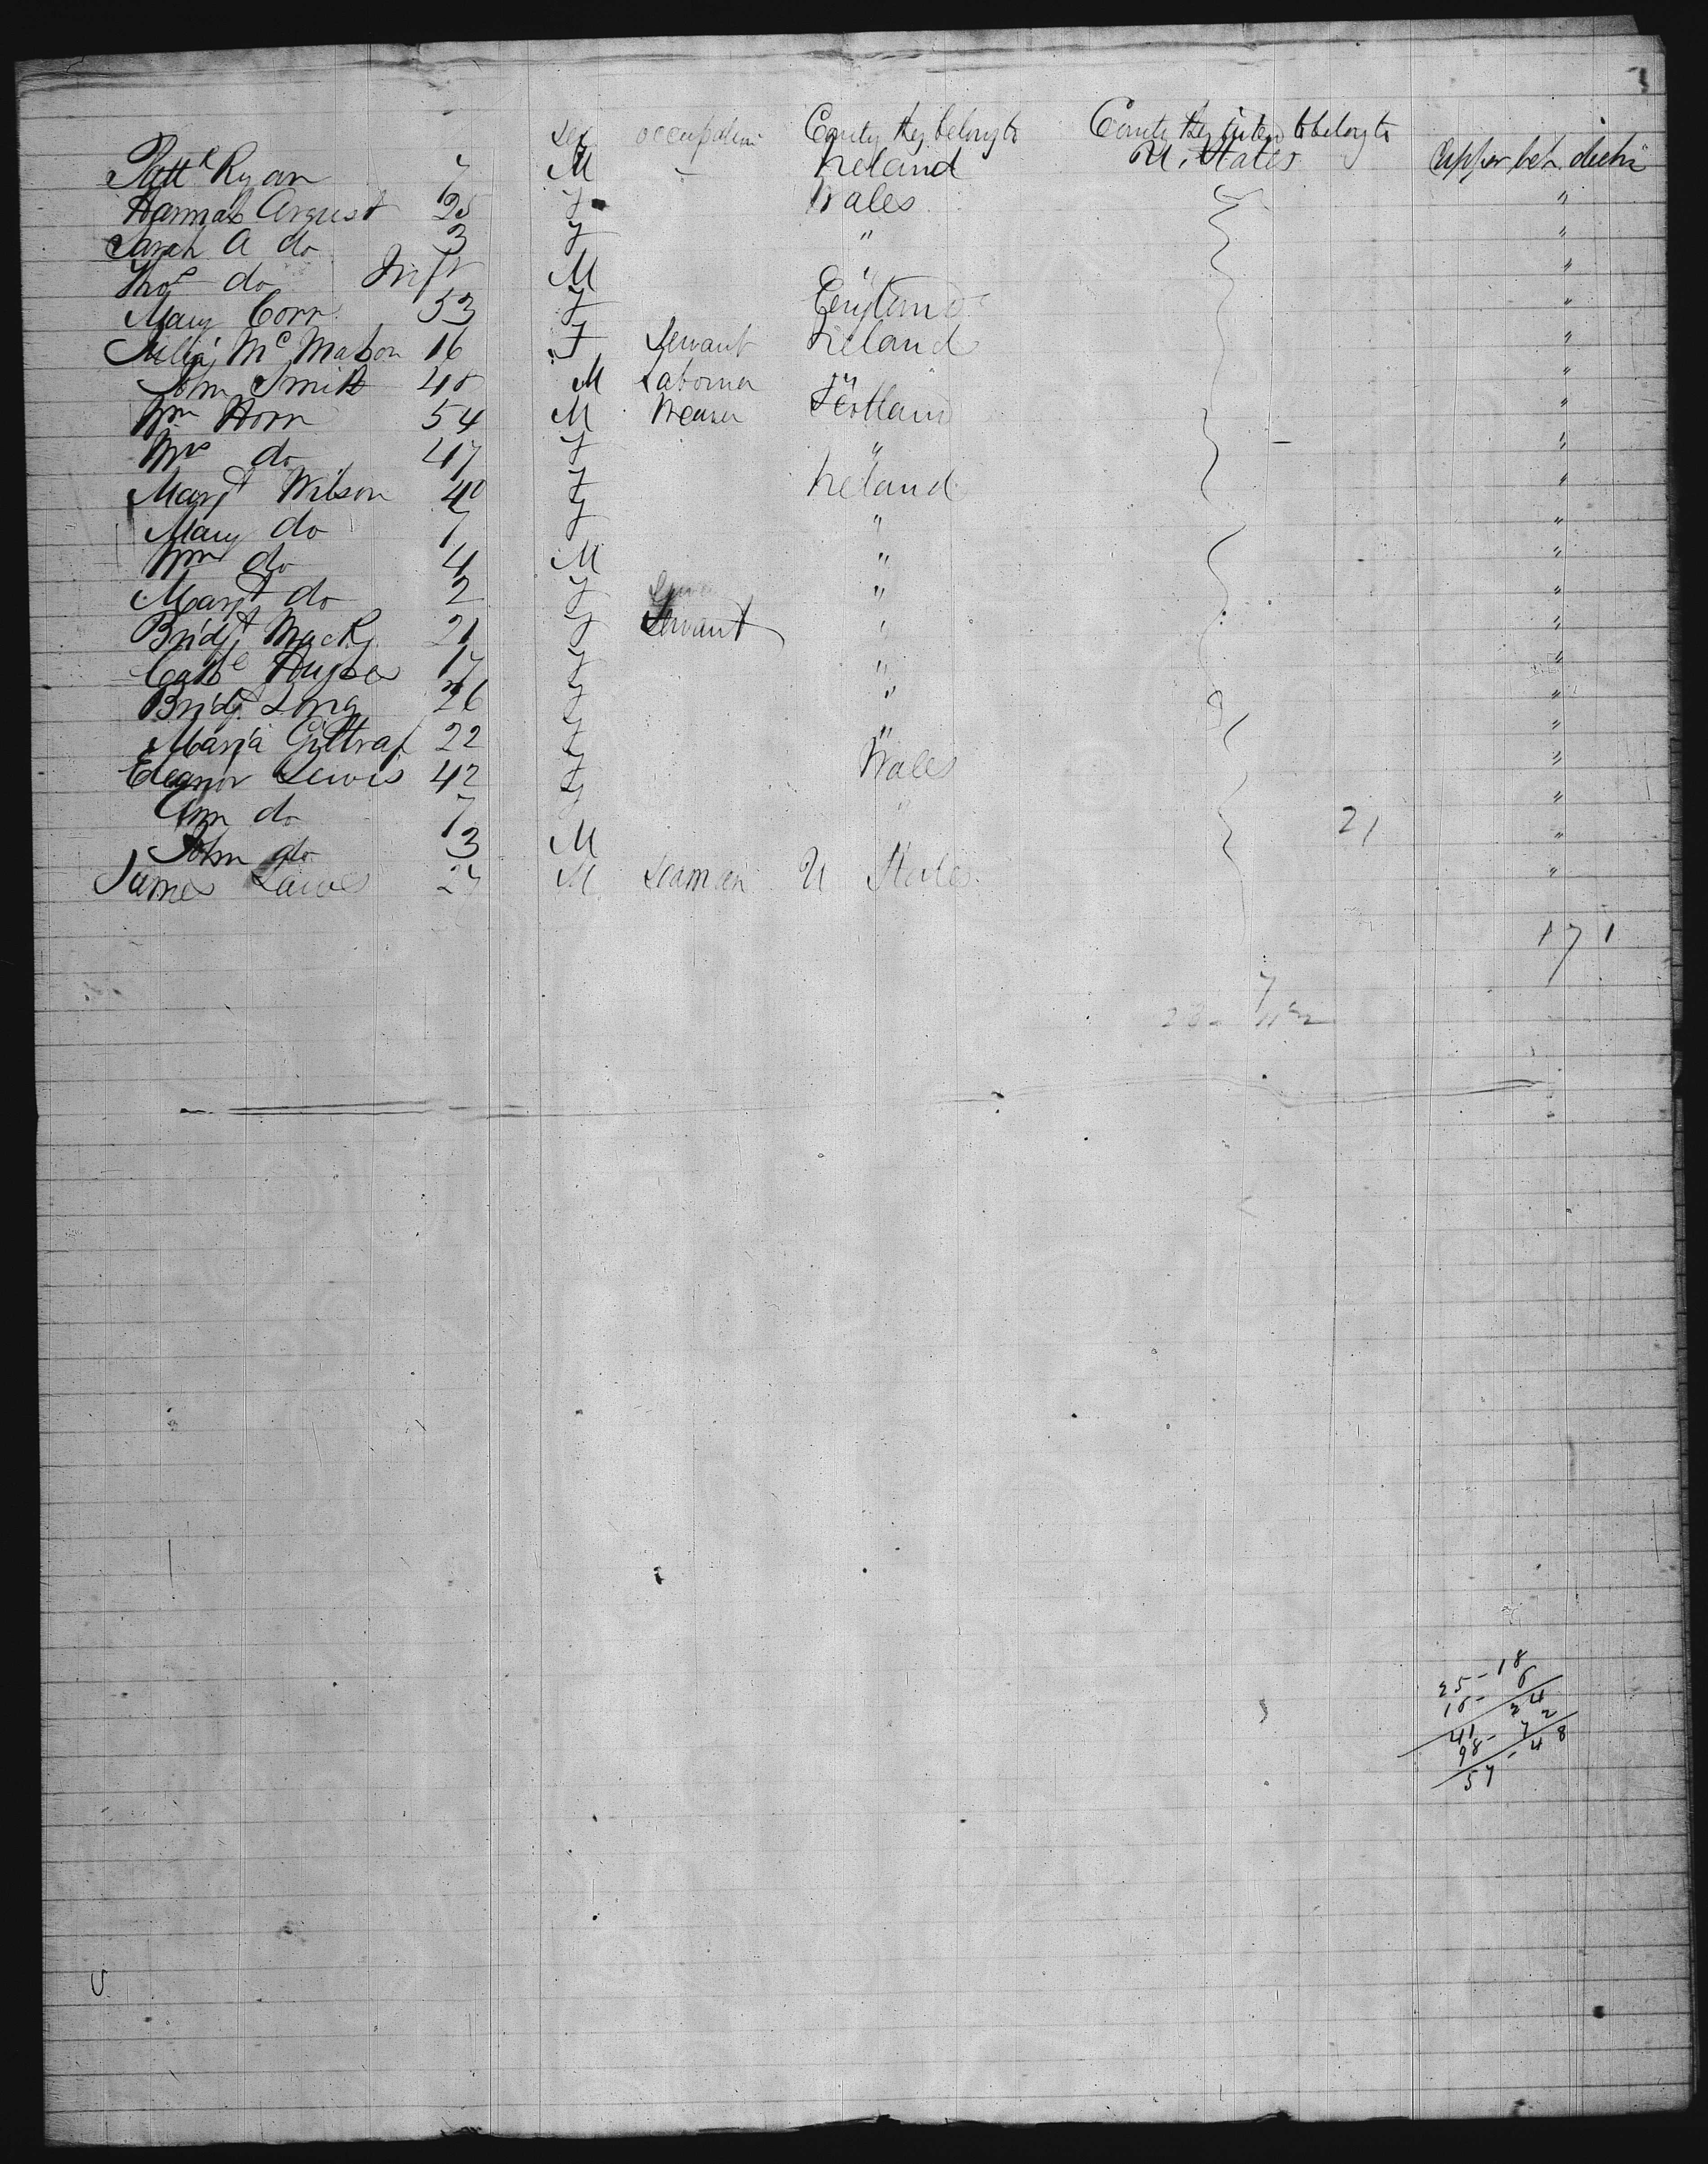 Sex occupation Contry they belong to Contry they inten to belong to
Patt^k Ryan 7 M - Ireland U. States Upper bet. decks
Hannah August 25 F Wales "
Sarah A do 3 F " "
Tho^s do Inft M " "
Mary Corr 53 F England "
Julia McMahon 16 F Servant Ireland "
John Smith 48 M Laborer " "
Wm Horn 54 M Weaver Scotland "
Mrs do 47 F " "
Marg^t Wilson 40 F Ireland "
Mary do 7 F " "
Wm do 4 M " "
Marg^t do 2 F " "
Bridg^t 21 F Servant " "
Cath^e Hughes 17 F " "
Bridg^t Long 26 F " "
Maria Giltrap 22 F " "
Eleanor Lewis 42 F Wales "
Ann do 7 F " 21 "
John do 3 M "
James 27 M Seaman U State "
171
25 - 18
16 - 6
41 - 24
98 - 72
57 - 48